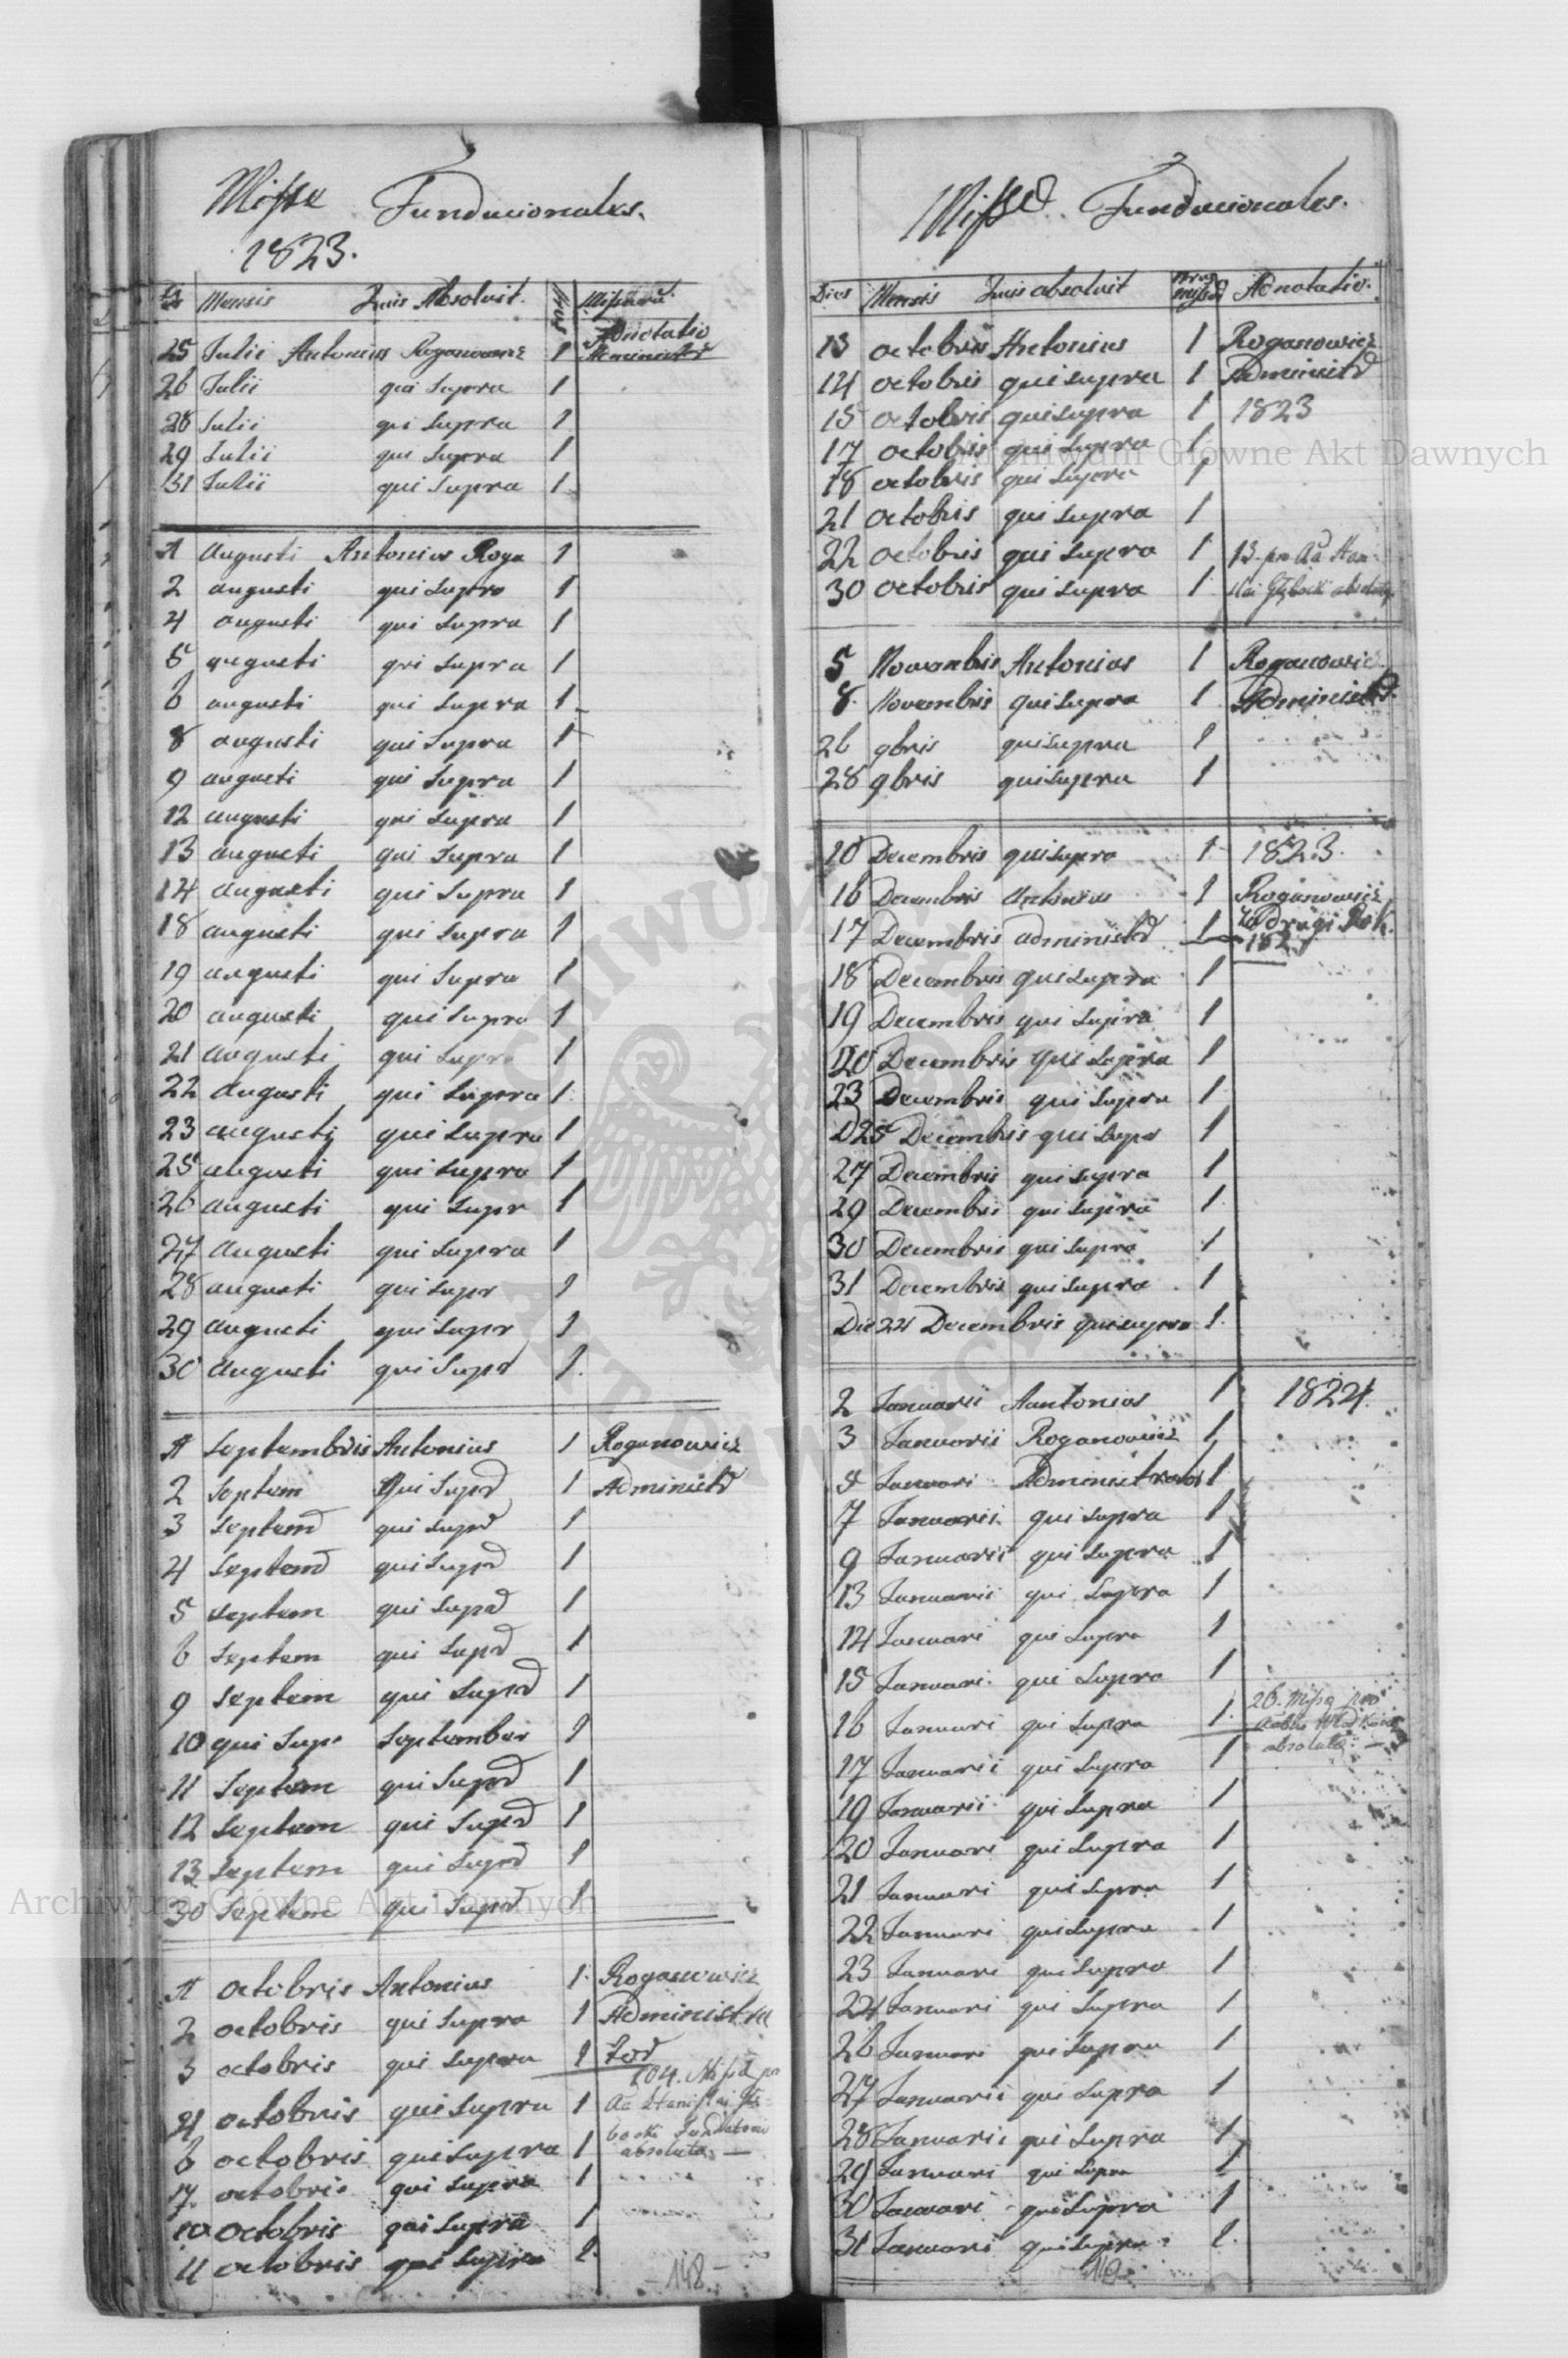 Missae Fundacionales.
1823.
Mensis Quis Absolvit. Missarū
Adnotatio
25 Julii Antonius Roganowicz 1 Administr
26 Julii qui Supra 1
28 Julii qui Supra 1
29 Julii qui Supra 1
31 Julii qui Supra 1
1 Augusti Antonius Roga 1
2 augusti qui Supra 1
4 augusti qui Supra 1
5 augusti qui Supra 1
6 augusti qui Supra 1
8 augusti qui Supra 1
9 augusti qui Supra 1
12 augusti qui Supra 1
13 augusti qui Supra 1
14 augusti qui Supra 1
18 augusti qui Supra 1
19 augusti qui Supra 1
20 augusti qui Supra 1
21 augusti qui Supra 1
22 Augusti qui Supra 1
23 augusti qui Supra 1
25 augusti qui Supra 1
26 augusti qui Supr 1
27 Augusti qui Supra 1
28 augusti qui Supr 1
29 augusti qui Supr 1
30 augusti qui Supr 1.
1 Septembris Antonius 1 Roganowicz
2 Septem Qui Supr 1 Administr
3 Septem qui Supr 1
4 Septem qui Supr 1
5 Septem qui Supr 1
6 Septem qui Supr 1
9 Septem qui Supr 1
10 qui Supr Septembris 1
11 Septem qui Supr 1
12 Septem qui Supr 1
13 Septem qui Supr 1
30 Septem qui Supr 1
1 octobris Antonius 1. Roganowicz
2 octobris qui Supra 1 Administra
3 octobris qui Supra 1 tor
104. Missae pro
4 octobris qui Supra 1 Aā Stanislai Głę
bocki Fundatoris
6 octobris qui Supra 1 absolutae —
7. octobris qui Supra 1
10 octobris qui Supra 1
11 octobris qui Supra 1.
148.
Missae Fundacionales.
Dies Mensis Quis absolvit Missae Adnotatio.
13 octobris Antonius 1 Roganowicz
14 octobris qui Supra 1 Administr
15 octobris qui Supra 1 1823
17 octobris qui Supra 1
18 octobris qui Supra 1
21 octobris qui Supra 1
22 octobris qui Supra 1 13. pro Aā Stan
30 octobris qui Supra 1 slai Głębocki absolutae
5 Novembris Antonius 1 Roganowicz
8. Novembris qui Supra 1 Administr.
26 9bris qui Supra 1
28 9bris qui Supra 1
10 Decembris qui Supra 1 1823.
16 Decembris Antonius 1 Roganowicz
17 Decembris administr 1 drugi Rok.
18 Decembris qui Supra 1
19 Decembris qui Supra 1
20 Decembris qui Supra 1
23 Decembris qui Supra 1
D 25 Decembris qui Supr 1
27 Decembris qui Supra 1
29 Decembris qui Supra 1
30 Decembris qui Supra 1
31 Decembris qui Supra 1
Die 24 Decembris qui Supra 1.
2 Januarii Aantonius 1 1824.
3 Januarii Roganowicz 1
4 Januari Administrator 1
7 Januarii qui Supra 1
9 Januarii qui Supra 1
13 Januarii qui Supra 1
14 Januari qui Supra 1
15 Januari qui Supra 1
26. Missae pro
16 Januari qui Supra 1.
absolutae —
17 Januarii qui Supra 1
19 Januarii qui Supra 1
20 Januari qui Supra 1
21 Januari qui Supra 1
22 Januari qui Supra 1
23 Januari qui Supra 1
24 Januari qui Supra 1
26 Januari qui Supra 1
27 Januarii qui Supra 1
28 Januarii qui Supra 1
29 Januari qui Supra 1
30 Januari qui Supra 1
31 Januari qui Supra 1.
Archiwum Główne Akt Dawnych
Archiwum Główne Akt Dawnych